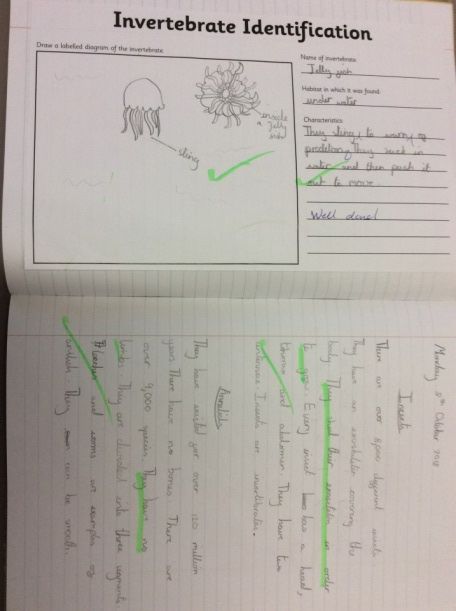 Invertebrate Identification
Draw a labelled diagram of the invertebrate
sting
inside
a Jelly
fish
Name of invertebrate:
Jelly fish
Habitat in which it was found:
under water
Characteristics:
They sting, to worry
They suck in
water and then push it
out to move.
Well done!
Monday 8th October 2018
Insects
There are over 8,000 different insects
They have an exoskeleton covering the
body. They shed their exoskeleton in order
to grow. Every insect has a head,
thorax and abdomen. They have two
antennae. Insects are invertebrates.
Annelids
They have existed for over 120 million
years. There have no bones. There are
over 9,000 species. They have no
limbs. They are divided into three segments
leeches and worms are examples of
annelids. They can be smooth,